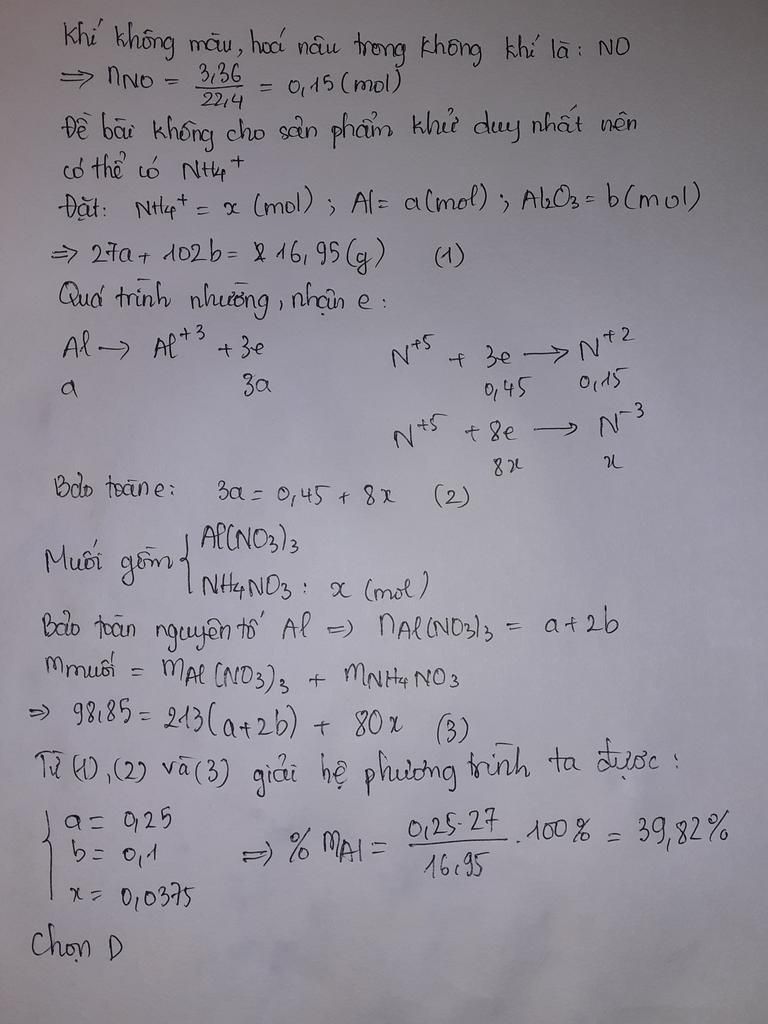 Khí không màu, hoá nâu trong không khí là: NO
=> nNO = 3,36/22,4 = 0,15 (mol)
Đề bài không cho sản phẩm khử duy nhất nên
có thể có NH4+
Đặt: NH4+ = x (mol) ; Al = a(mol) ; Al2O3 = b(mol)
=> 27a + 102b = 16,95(g) (1)
Quá trình nhường, nhận e:
Al -> Al+3 + 3e
a 3a
N+5 + 3e -> N+2
0,45 0,15
N+5 + 8e -> N-3
8x x
Bảo toàn e: 3a = 0,45 + 8x (2)
Muối gồm { Al(NO3)3
NH4NO3 : x (mol)
Bảo toàn nguyên tố Al => nAl(NO3)3 = a+2b
mmuối = mAl(NO3)3 + mNH4NO3
=> 98,85 = 213(a+2b) + 80x (3)
Từ (1), (2) và (3) giải hệ phương trình ta được:
{ a = 0,25
b = 0,1
x = 0,0375
=> % mAl = 0,25.27/16,95 . 100% = 39,82%
Chọn D